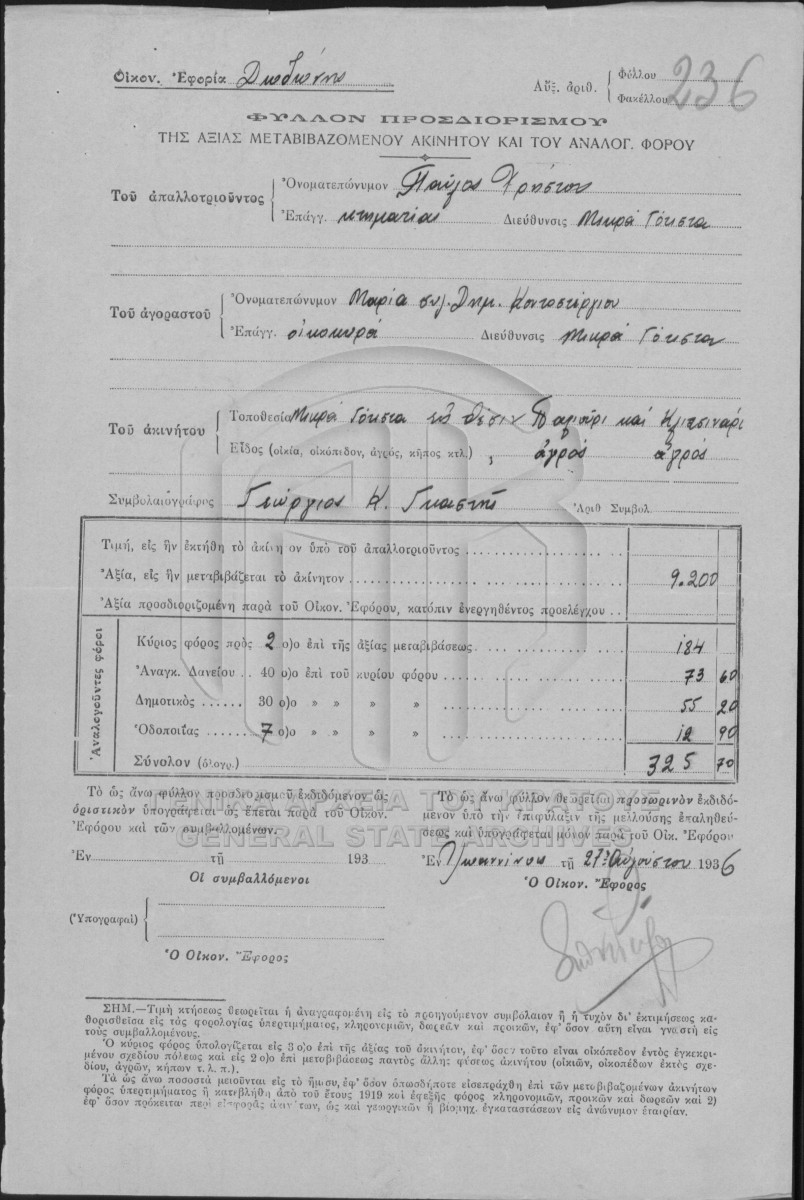 Οἰκον. Ἐφορία Δωδώνης
Αὔξ. ἀριθ. { Φύλλου 236
Φακέλλου
ΦΥΛΛΟΝ ΠΡΟΣΔΙΟΡΙΣΜΟΥ
ΤΗΣ ΑΞΙΑΣ ΜΕΤΑΒΙΒΑΖΟΜΕΝΟΥ ΑΚΙΝΗΤΟΥ ΚΑΙ ΤΟΥ ΑΝΑΛΟΓ. ΦΟΡΟΥ
Τοῦ ἀπαλλοτριοῦντος { Ὀνοματεπώνυμον Παῦλος Χρήστου
Ἐπάγγ. κτηματίας Διεύθυνσις Μικρά Γότιστα
Τοῦ ἀγοραστοῦ { Ὀνοματεπώνυμον Μαρία συζ. Δημ. Κοντοστέργιου
Ἐπάγγ. οἰκοκυρά Διεύθυνσις Μικρά Γότιστα
Τοῦ ἀκινήτου { Τοποθεσία Μικρά Γότιστα εἰς θέσιν καί
Εἶδος (οἰκία, οἰκόπεδον, ἀγρός, κῆπος κτλ.) ἀγρός ἀγρός
Συμβολαιογράφος Γεώργιος Κ. Γκαστῆς Ἀριθ Συμβολ.
Τιμή, εἰς ἣν ἐκτήθη τὸ ἀκίνη ον ὑπὸ τοῦ ἀπαλλοτριοῦντος
Ἀξία, εἰς ἣν μεταβιβάζεται τὸ ἀκίνητον 9.200
Ἀξία προσδιοριζομένη παρὰ τοῦ Οἰκον. Ἐφόρου, κατόπιν ἐνεργηθέντος προελέγχου
Ἀναλογοῦντες φόροι
Κύριος φόρος πρὸς 2 ο)ο ἐπὶ τῆς ἀξίας μεταβιβάσεως 184
Ἀναγκ. Δανείου 40 ο)ο ἐπὶ τοῦ κυρίου φόρου 73 60
Δημοτικὸς 30 ο)ο » » » » 55 20
Ὁδοποιΐας 7 ο)ο » » » » 12 90
Σύνολον (ὁλογρ.) 325 70
Τὸ ὡς ἄνω φύλλον προσδιορισμοῦ ἐκδιδόμενον ὡς
ὁριστικὸν ὑπογράφεται ὡς ἕπεται παρὰ τοῦ Οἰκον.
Ἐφόρου καὶ τῶν συμβαλλομένων.
Ἐν τῇ 193
Οἱ συμβαλλόμενοι
(Ὑπογραφαὶ) {
Ὁ Οἰκον. Ἔφορος
Τὸ ὡς ἄνω φύλλον θεωρεῖται προσωρινὸν ἐκδιδό-
μενον ὑπὸ τὴν ἐπιφύλαξιν τῆς μελλούσης ἐπαληθεύ-
σεως καὶ ὑπογράφεται μόνον παρὰ τοῦ Οἰκ. Ἐφόρου
Ἐν Ἰωαννίνοις τῇ 27ῃ Αὐγούστου 1936
Ὁ Οἰκον. Ἔφορος
ΓΕΝΙΚΑ ΑΡΧΕΙΑ ΤΟΥ ΚΡΑΤΟΥΣ
GENERAL STATE ARCHIVES
ΣΗΜ.—Τιμὴ κτήσεως θεωρεῖται ἡ ἀναγραφομένη εἰς τὸ προηγούμενον συμβόλαιον ἢ ἡ τυχὸν δι' ἐκτιμήσεως κα-
θορισθεῖσα εἰς τὰς φορολογίας ὑπερτιμήματος, κληρονομιῶν, δωρεῶν καὶ προικῶν, ἐφ' ὅσον αὕτη εἶναι γνωστὴ εἰς
τοὺς συμβαλλομένους.
Ὁ κύριος φόρος ὑπολογίζεται εἰς 3 ο)ο ἐπὶ τῆς ἀξίας τοῦ ἀκινήτου, ἐφ' ὅσον τοῦτο εἶναι οἰκόπεδον ἐντὸς ἐγκεκρι-
μένου σχεδίου πόλεως καὶ εἰς 2 ο)ο ἐπὶ μεταβιβάσεως παντὸς ἄλλης φύσεως ἀκινήτου (οἰκιῶν, οἰκοπέδων ἐκτὸς σχε-
δίου, ἀγρῶν, κήπων τ. λ. π.).
Τὰ ὡς ἄνω ποσοστὰ μειοῦνται εἰς τὸ ἥμισυ, ἐφ' ὅσον ὁπωσδήποτε εἰσεπράχθη ἐπὶ τῶν μεταβιβαζομένων ἀκινήτων
φόρος ὑπερτιμήματος ἢ κατεβλήθη ἀπὸ τοῦ ἔτους 1919 καὶ ἐφεξῆς φόρος κληρονομιῶν, προικῶν καὶ δωρεῶν καὶ 2)
ἐφ' ὅσον πρόκειται περὶ εἰσφορᾶς ἀκινήτων, ὡς καὶ γεωργικῶν ἢ βιομηχ. ἐγκαταστάσεων εἰς ἀνώνυμον ἑταιρίαν.